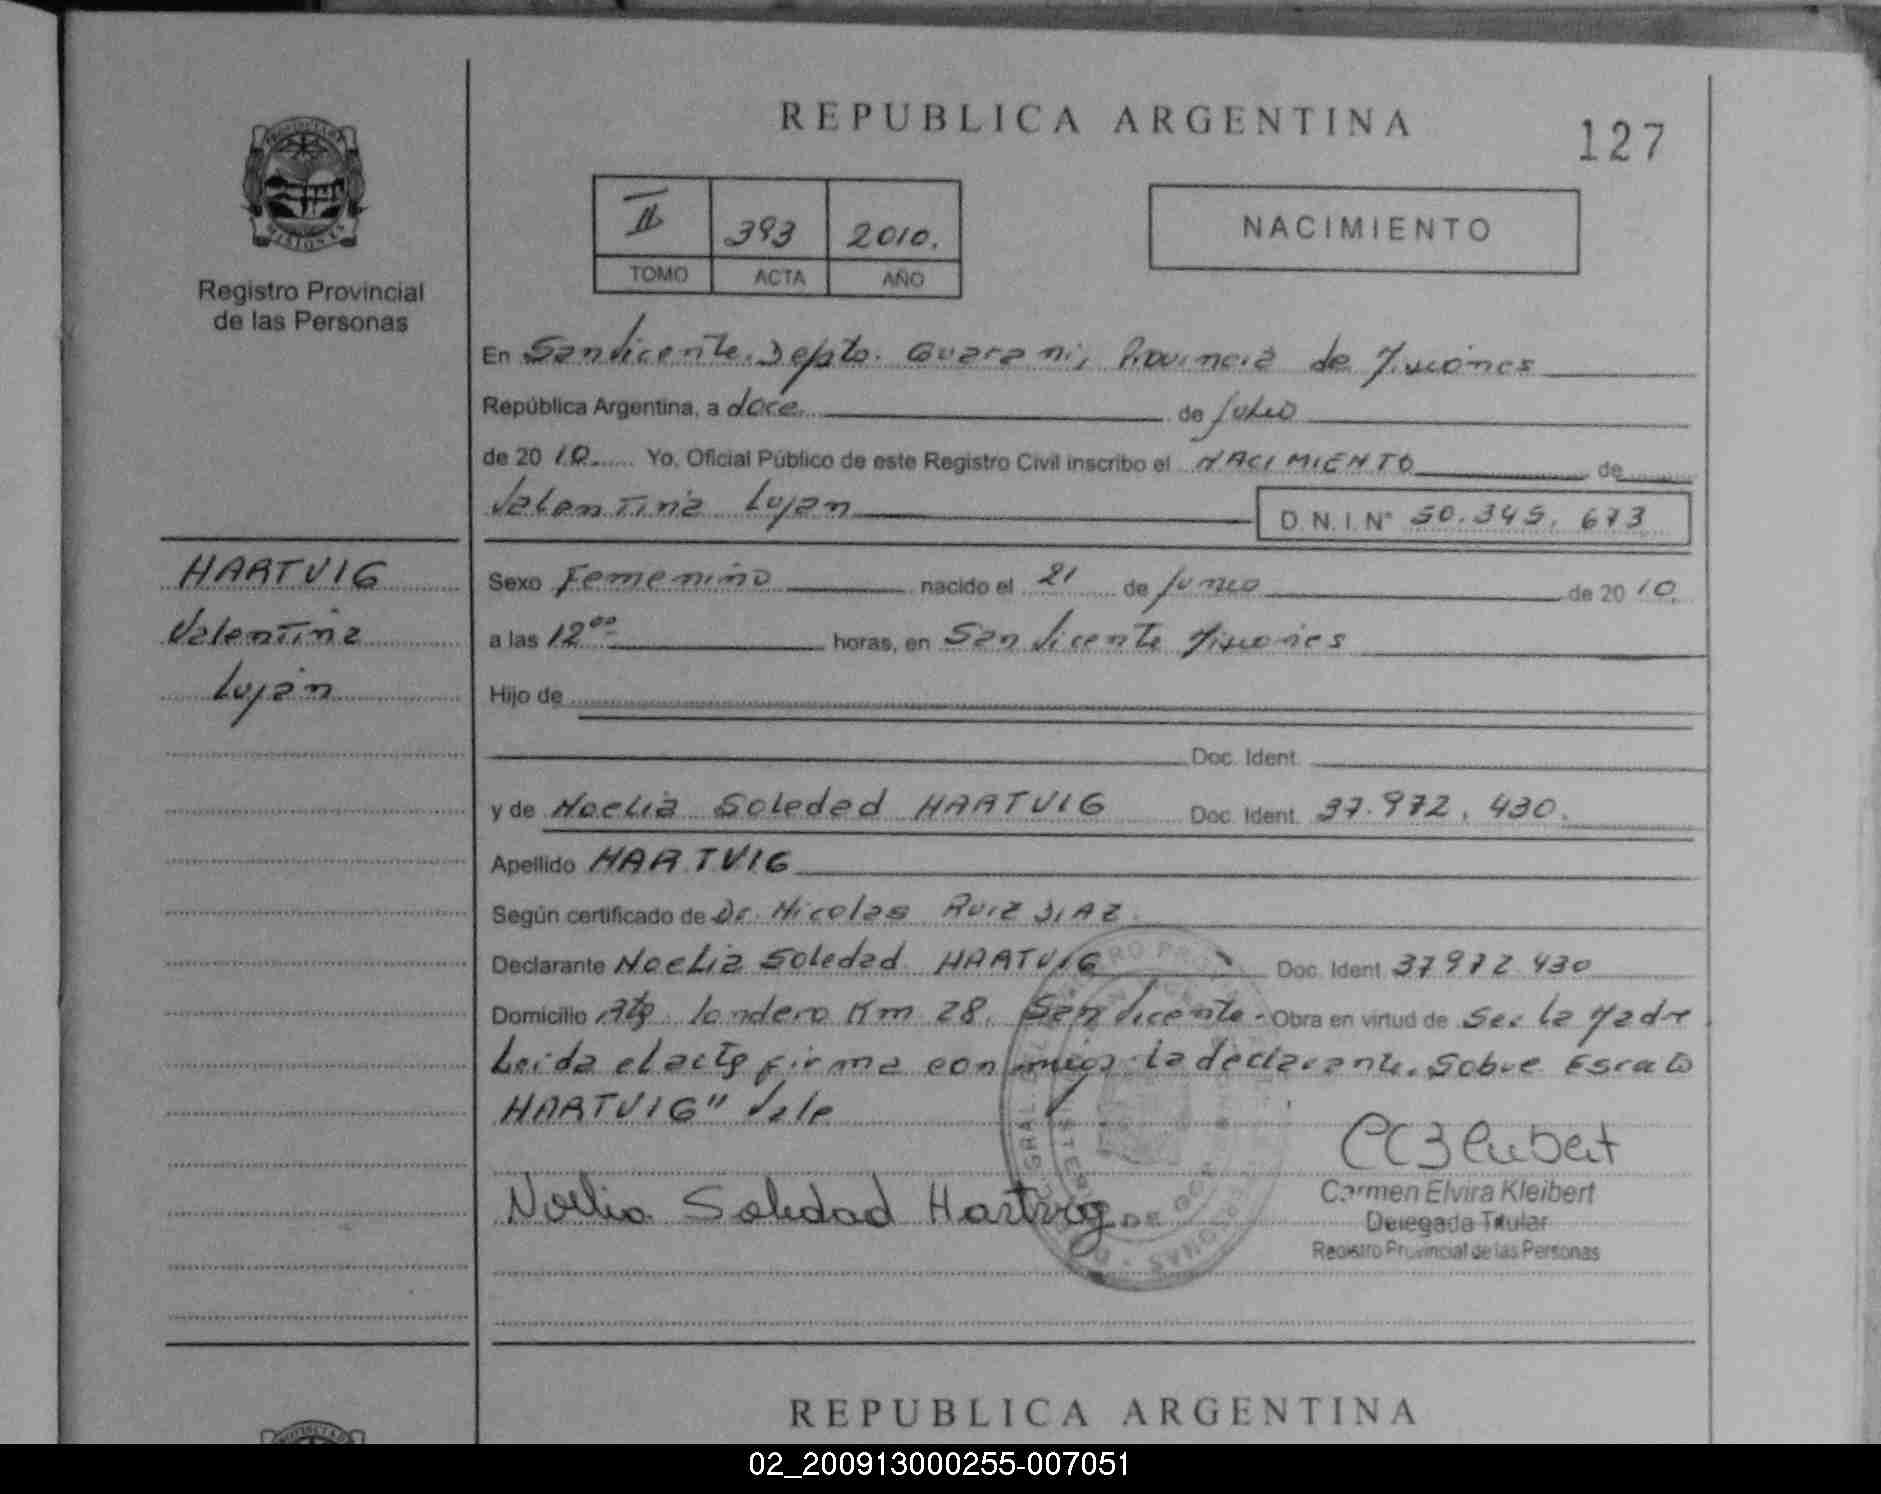 REPUBLICA ARGENTINA
127
PROVINCIA DE
MISIONES
Registro Provincial
de las Personas
II 393 2010.
TOMO ACTA AÑO
NACIMIENTO
En San Vicente. Depto. Guarani, Provincia de Misiones
República Argentina, a doce de Julio
de 20 10 Yo, Oficial Público de este Registro Civil inscribo el NACIMIENTO de
Valentina Lujan D.N.I.Nº 50.345.673
HARTVIG
Valentina
Luján
Sexo Femenino nacido el 21 de Junio de 20 10.
a las 12 00 horas, en San Vicente Misiones
Hijo de
Doc. Ident.
y de Noelia Soledad HARTVIG Doc. Ident. 37.972.430.
Apellido HARTVIG
Según certificado de Dr. Nicolas Ruiz DIAZ.
Declarante Noelia Soledad HARTVIG Doc. Ident 37972 430
Domicilio londero Km 28. San Vicente - Obra en virtud de Ser la Madre
Leida el acta firma con migo la declarante. Sobre Escrito
HARTVIG" Vale
Noelia Soledad Hartvig
Carmen Elvira Kleibert
Delegada Titular
Registro Provincial de las Personas
REPUBLICA ARGENTINA
02_200913000255-007051